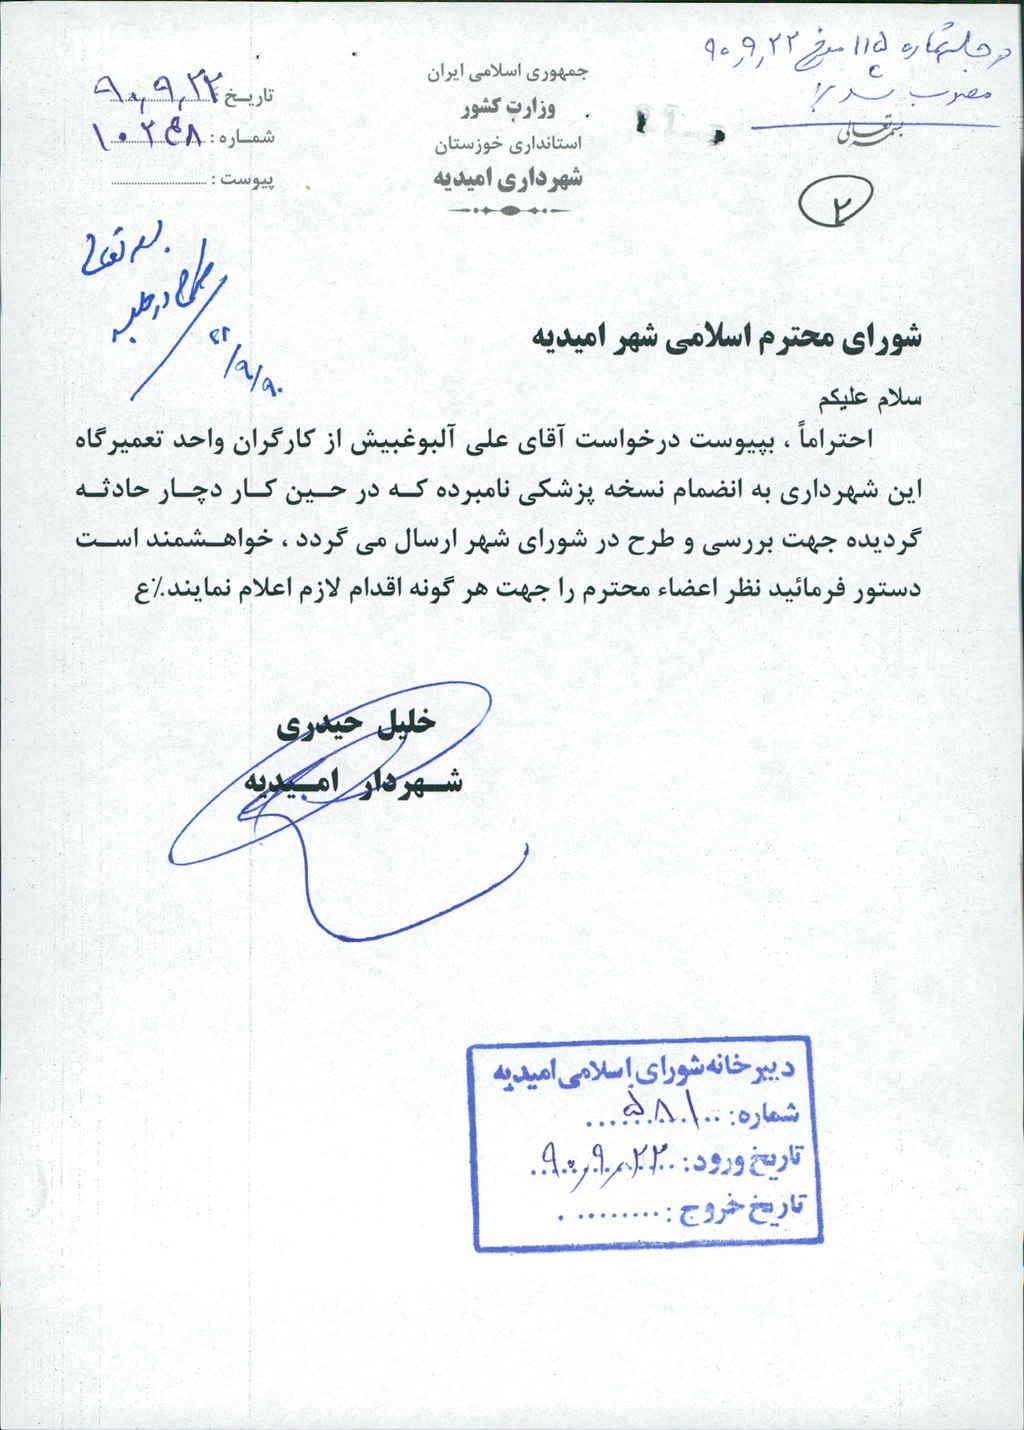 در جلسه شماره ۱۱۵ مورخ ۹۰,۹,۲۲
مصوب شد
بسمه تعالی
جمهوری اسلامی ایران
وزارت کشور
استانداری خوزستان
شهرداری امیدیه
تاریخ : ۹۰,۹,۲۲
شماره :
پیوست :
۲
بسمه تعالی
طرح در جلسه
۹۰/۹/۲۲
شورای محترم اسلامی شهر امیدیه
سلام علیکم
احتراماً ، بپیوست درخواست آقای علی آلبوغبیش از کارگران واحد تعمیرگاه
این شهرداری به انضمام نسخه پزشکی نامبرده که در حین کار دچار حادثه
گردیده جهت بررسی و طرح در شورای شهر ارسال می گردد ، خواهشمند است
دستور فرمائید نظر اعضاء محترم را جهت هر گونه اقدام لازم اعلام نمایند.٪ع
خلیل حیدری
شهردار امیدیه
دبیرخانه شورای اسلامی امیدیه
شماره: ۵۸۱
تاریخ ورود: ۹۰,۹,۲۲
تاریخ خروج :